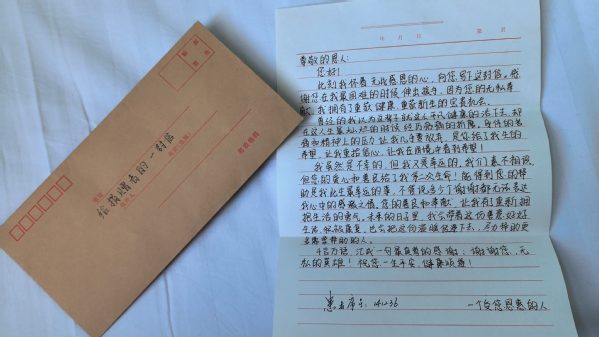 给捐赠者的一封信
年 月 日 第 页
尊敬的恩人:
您好!
此刻我怀着无比感恩的心,向您写下这封信。感
谢您在我最困难的时候伸出援手,因为您的无私奉
献,我拥有了重获健康、重获新生的宝贵机会。
曾经的我以为这辈子就这么平凡健康的活下去,却
在这人生最灿烂的时候经历病痛的折磨。身体的苦
痛和精神上的压力让我几乎要放弃,是您给了我生的
希望,让我重拾信心,让我在困境中看到希望!
我虽然是不幸的,但我又是幸运的,我们素不相识,
但您的爱心和善良给了我第二次生命!能得到您的帮
助是我此生最幸运的事,不管说多少"谢谢"都无法表达
我心中的感激之情,您的善良和奉献,让我有了重新拥
抱生活的勇气。未来的日子里,我会带着这份善意好好
生活,积极康复,也会把这份温暖传递下去,尽力帮助更
多需要帮助的人。
千言万语,汇成一句最真挚的感谢:谢谢您,无
私的英雄!祝您一生平安,健康顺遂!
患者序号:141236 一个受您恩惠的人